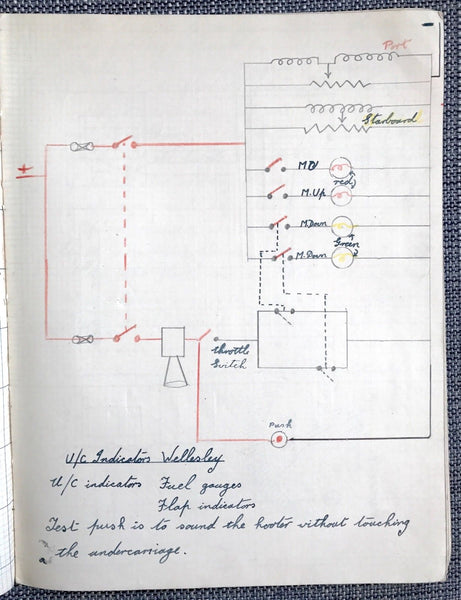 Port
Starboard
M.Up
red
M.Up
M.Down
Green
M.Down
throttle
Switch
Push
U/C Indicators Wellesley
U/C indicators Fuel gauges
Flap indicators
Test push is to sound the hooter without touching
the undercarriage.